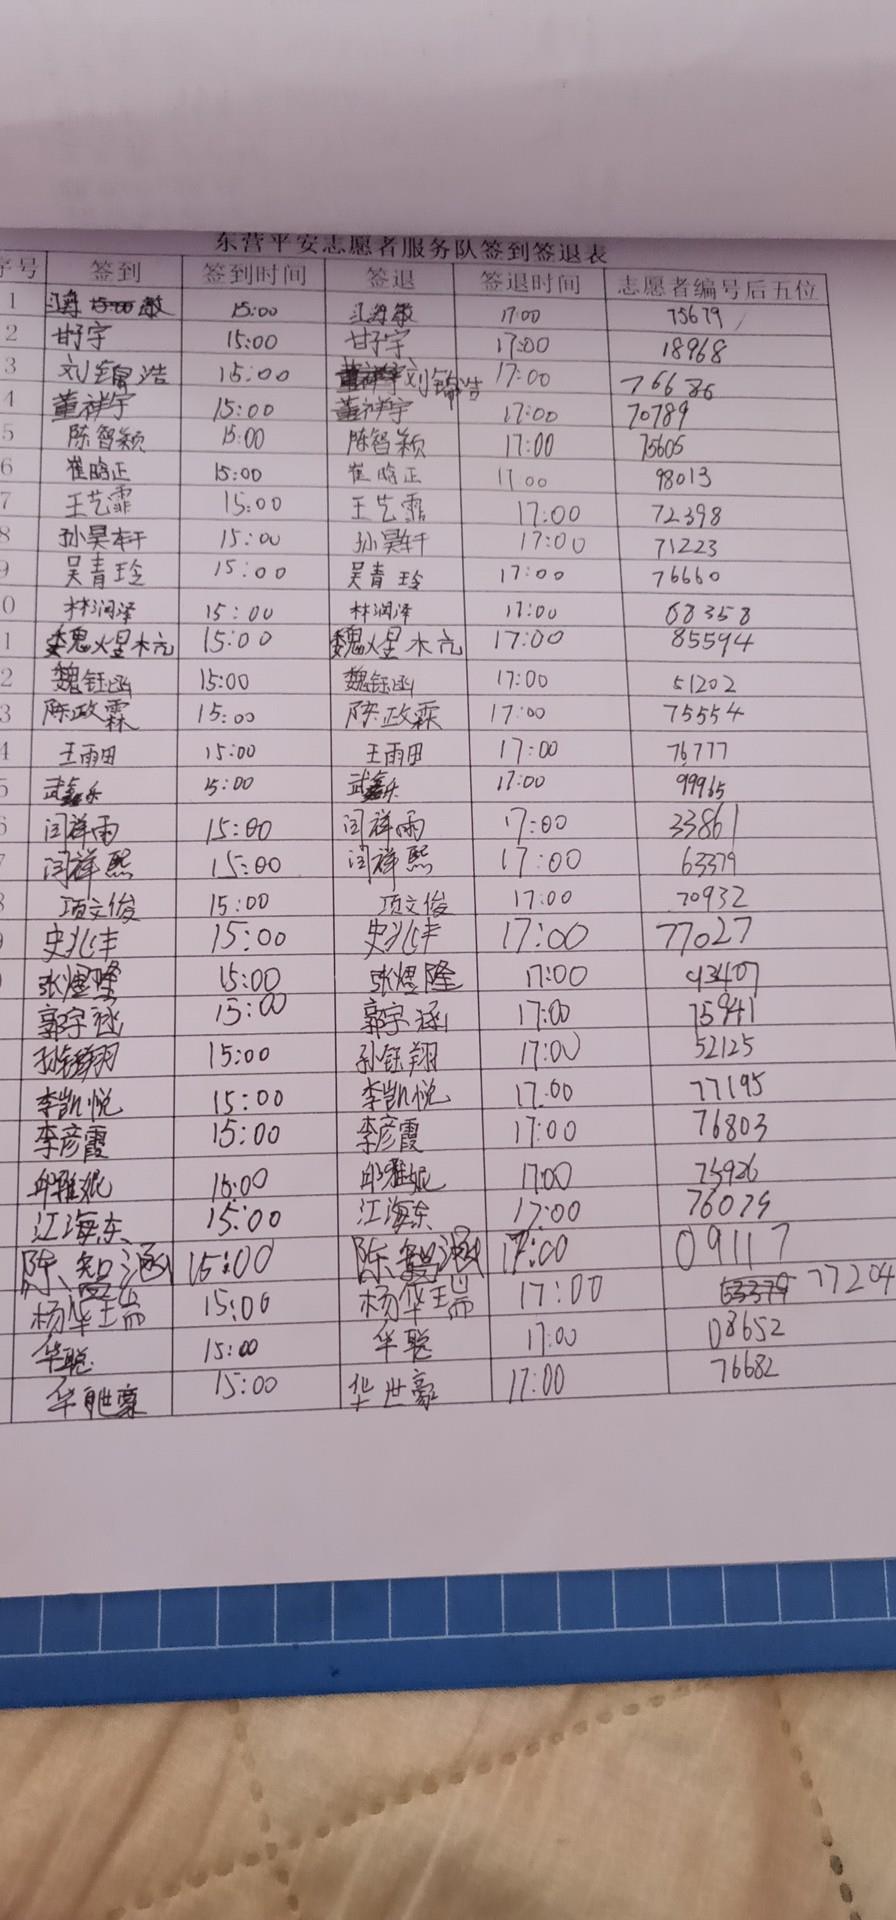 东营平安志愿者服务队签到签退表
序号 签到 签到时间 签退 签退时间 志愿者编号后五位
1 江海敏 15:00 江海敏 17:00 75679
2 甘子宇 15:00 甘子宇 17:00 18968
3 刘锦浩 15:00 刘锦浩 17:00 76686
4 董祥宇 15:00 董祥宇 17:00 70789
5 陈智颖 15:00 陈智颖 17:00 75605
6 崔晗正 15:00 崔晗正 17:00 98013
7 王艺霏 15:00 王艺霏 17:00 72398
8 孙昊轩 15:00 孙昊轩 17:00 71223
9 吴青玲 15:00 吴青玲 17:00 76660
0 林润泽 15:00 林润泽 17:00 68358
1 魏煋木亢 15:00 魏煋木亢 17:00 85594
2 魏钰函 15:00 魏钰函 17:00 51202
3 陈政霖 15:00 陈政霖 17:00 75554
4 王雨田 15:00 王雨田 17:00 76777
5 武鑫乐 15:00 武鑫乐 17:00 99965
6 闫祥雨 15:00 闫祥雨 17:00 33861
7 闫祥熙 15:00 闫祥熙 17:00 63379
8 项文俊 15:00 项文俊 17:00 70932
9 史兆丰 15:00 史兆丰 17:00 77027
张煜隆 15:00 张煜隆 17:00 93407
郭宇涵 15:00 郭宇涵 17:00 75941
孙钰翔 15:00 孙钰翔 17:00 52125
李凯悦 15:00 李凯悦 17:00 77195
李彦霞 15:00 李彦霞 17:00 76803
邱雅妮 16:00 邱雅妮 17:00 75926
江海东 15:00 江海东 17:00 76079
陈智涵 15:00 陈智涵 17:00 09117
杨华瑞 15:00 杨华瑞 17:00 77204
华聪 15:00 华聪 17:00 08652
华世豪 15:00 华世豪 17:00 76682